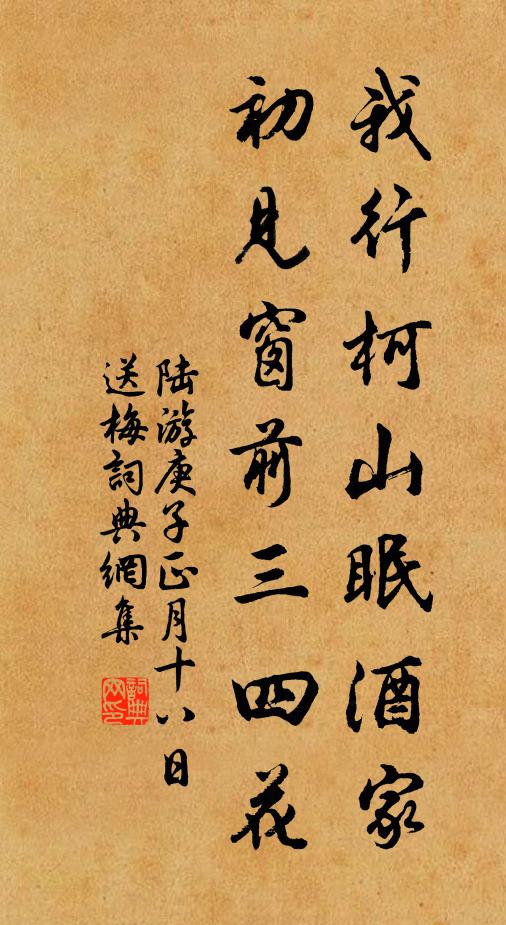 我行柯山眠酒家
初見窗前三四花
陆游庚子正月十八日
送梅詞典網集
詞典
网印